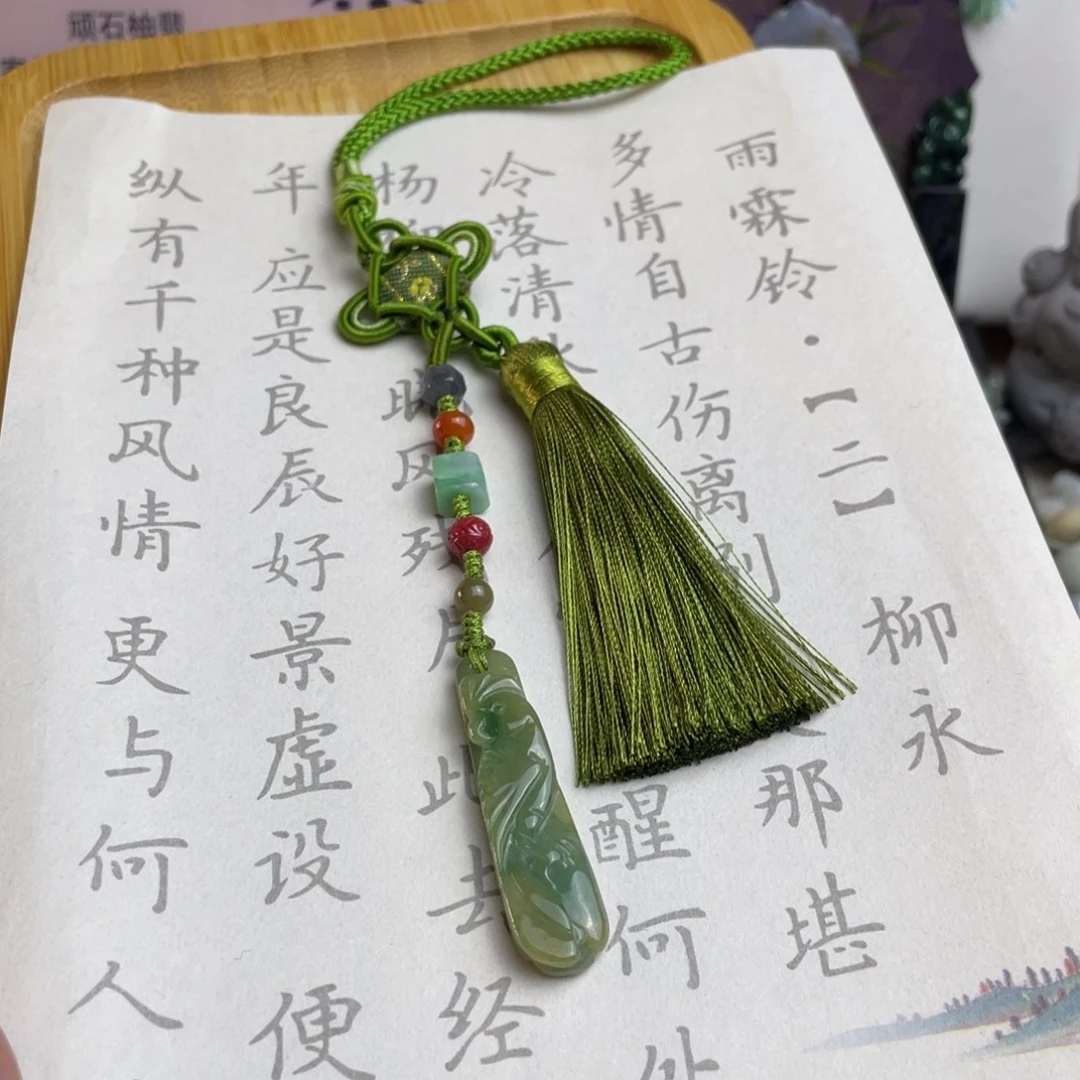 顽石柚翡
雨霖铃·【二】 柳永
多情自古伤离别 那堪
冷落清 醒何
杨 晓风残月 此去经
年 应是良辰好景虚设 便
纵有千种风情 更与何人